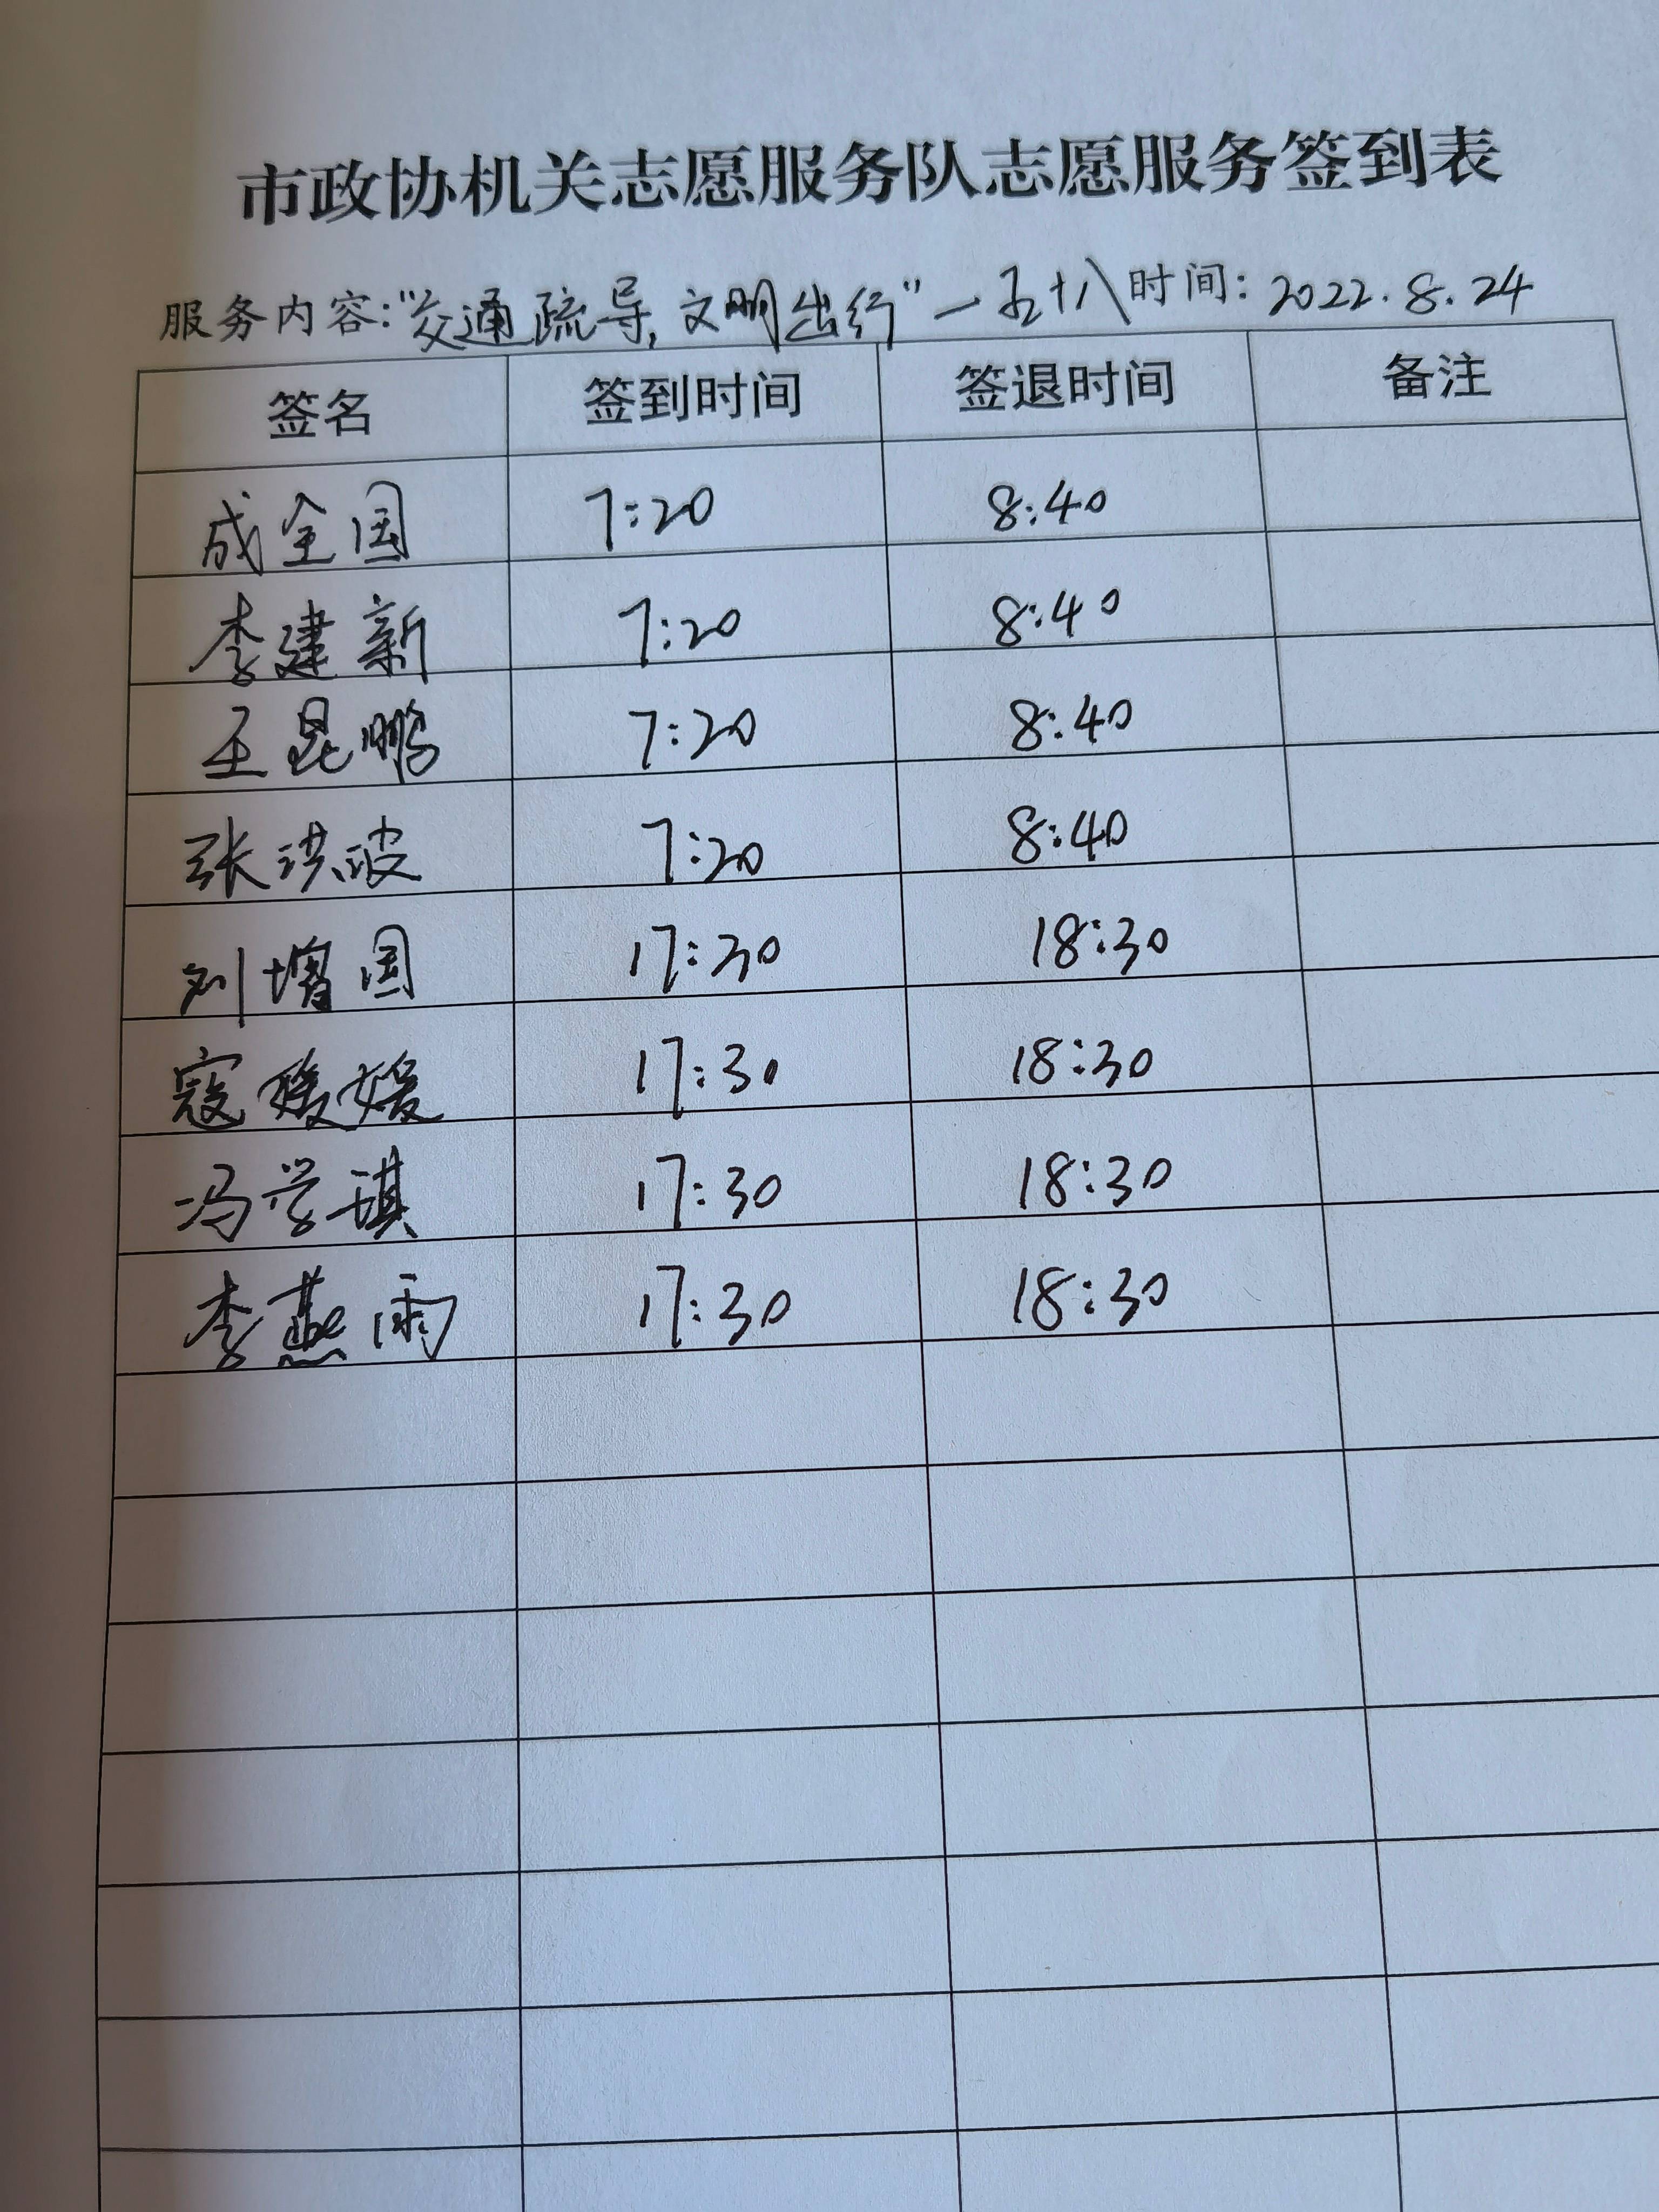 市政协机关志愿服务队志愿服务签到表
服务内容:“交通疏导,文明出行”一五十八时间: 2022.8.24
签名 签到时间 签退时间 备注
成全国 7:20 8:40
李建新 7:20 8:40
王昆鹏 7:20 8:40
张洪波 7:20 8:40
刘增国 17:30 18:30
寇媛媛 17:30 18:30
冯学琪 17:30 18:30
李燕雨 17:30 18:30